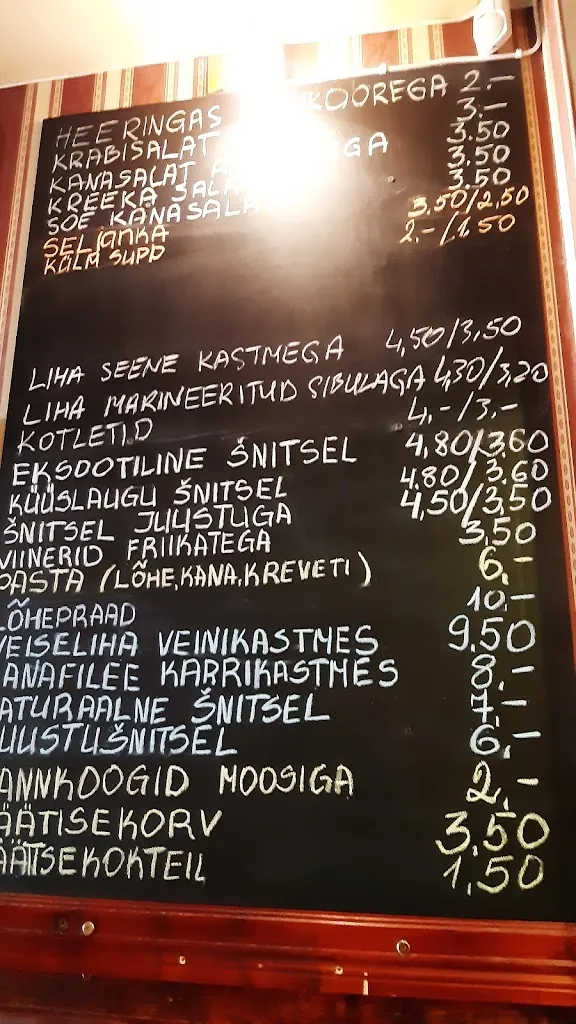 HEERINGAS KOOREGA 2.-
KRABISALAT 3.-
KANASALAT 3.50
KREEKA 3.50
SOE KANASALA 3.50
SELJANKA 3.50/2,50
KÜLM SUPP 2.-/1.50
LIHA SEENE KASTMEGA 4,50/3,50
LIHA MARINEERITUD SIBULAGA 4,30/3,20
KOTLETID 4,-/3,-
EKSOOTILINE ŠNITSEL 4,80/3,60
KÜÜSLAUGU ŠNITSEL 4.80/3.60
ŠNITSEL JUUSTUGA 4,50/3,50
VIINERID FRIIKATEGA 3,50
PASTA (LÕHE,KANA,KREVETI) 6,-
LÕHEPRAAD 10.-
VEISELIHA VEINIKASTMES 9.50
ANAFILEE KARRIKASTMES 8,-
ATURAALNE ŠNITSEL 7,-
UUSTUŠNITSEL 6,-
ANNKOOGID MOOSIGA 2,-
ÄÄTISEKORV 3,50
ÄÄTISEKOKTEIL 1,50